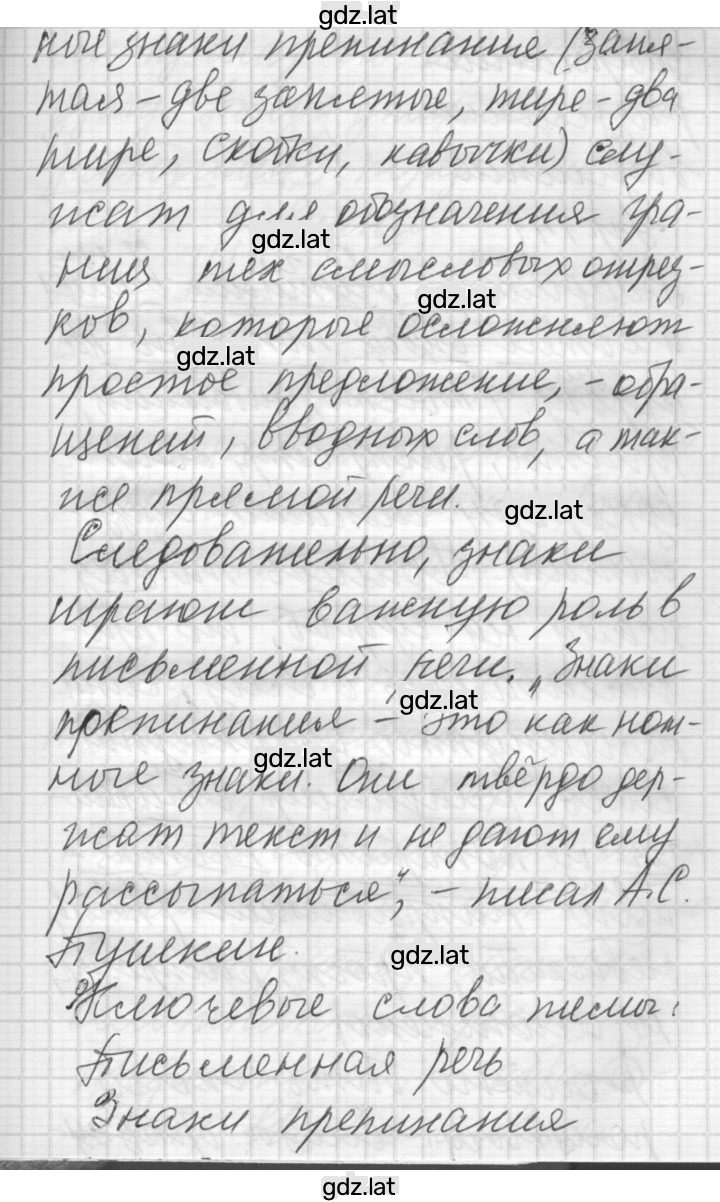 gdz.lat
ные знаки препинания (запя-
тая – две запятые, тире – два
тире, скобки, кавычки) слу-
жат для обозначения гра-
gdz.lat
ниц тех смысловых отрез-
gdz.lat
ков, которые осложняют
gdz.lat
простое предложение, – обра-
щений, вводных слов, а так-
же прямой речи.
gdz.lat
Следовательно, знаки
играют важную роль в
письменной речи. „Знаки
gdz.lat
препинания – это как нот-
gdz.lat
ные знаки. Они твёрдо дер-
жат текст и не дают ему
рассыпаться“, – писал А.С.
Пушкин.
gdz.lat
Ключевые слова темы:
Письменная речь
Знаки препинания
gdz.lat